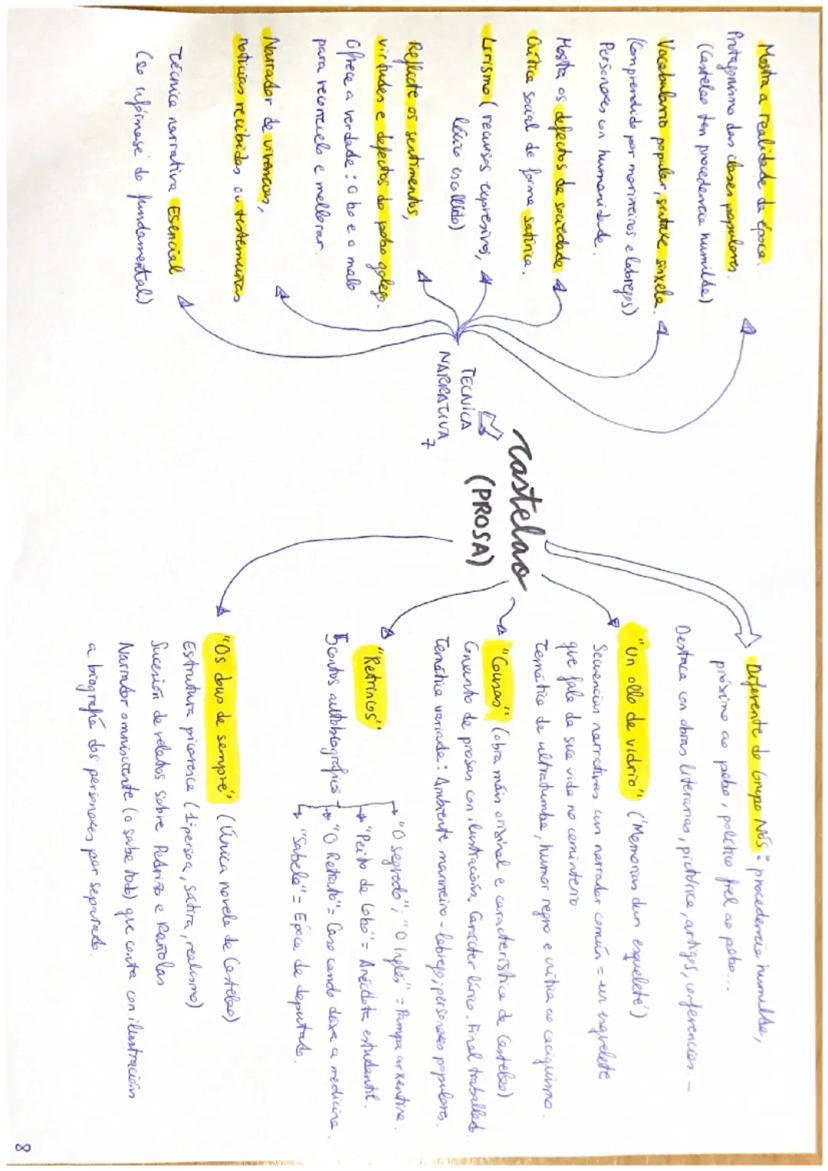 Mostra a realidade da época.
Protagonismo das clases populares.
(Castelao ten procedencia humilde)
Vocabulario popular, sintaxe sinxela.
(comprendido por mariñeiros e labregos)
Personaxes con humanidade.
Mostra os defectos da sociedade
Crítica social de forma satírica.
Lirismo (recursos expresivos,
léxico escollido)
Reflicte os sentimentos,
virtudes e defectos do pobo galego.
Ofrece a verdade: O bo e o malo
para recoñecelo e mellorar.
Narrador de vivencias,
noticias recibidas ou testemuñas
Técnica narrativa Esencial
(so infórmase do fundamental)
TECNICA
NARRATIVA
Castelao
(PROSA)
Diferente do Grupo Nós: procedencia humilde,
próximo ao pobo, político fiel ao pobo...
Destaca con obras literarias, pictórica, artigos, conferencias -
"Un ollo de vidrio" ('Memorias dun esquelete')
Secuencias narrativas cun narrador común = un esquelete
que fala da súa vida no cemiterio
Temática de ultratumba, humor negro e crítica ao caciquismo.
"Cousas" (obra máis orixinal e característica de Castelao)
Conxunto de prosas con ilustración. Carácter lírico. Final traballado.
Temática variada: Ambiente mariñeiro-labrego; personaxes populares.
"Retrincos"
5 contos autobiográficos
"O segredo"; "O inglés" = Pampa arxentina.
"Peito de lobo" = Anécdota estudantil.
"O Retrato" = Caso cando deixa a medicina.
"Sabela" = Época de deputado.
"Os dous de sempre" (Única novela de Castelao)
Estrutura picaresca (dispersa, sátira, realismo)
Sucesión de relatos sobre Pedriño e Rañolas
Narrador omnisciente (o sabe todo) que conta con ilustración
a biografía dos personaxes por separado.
8